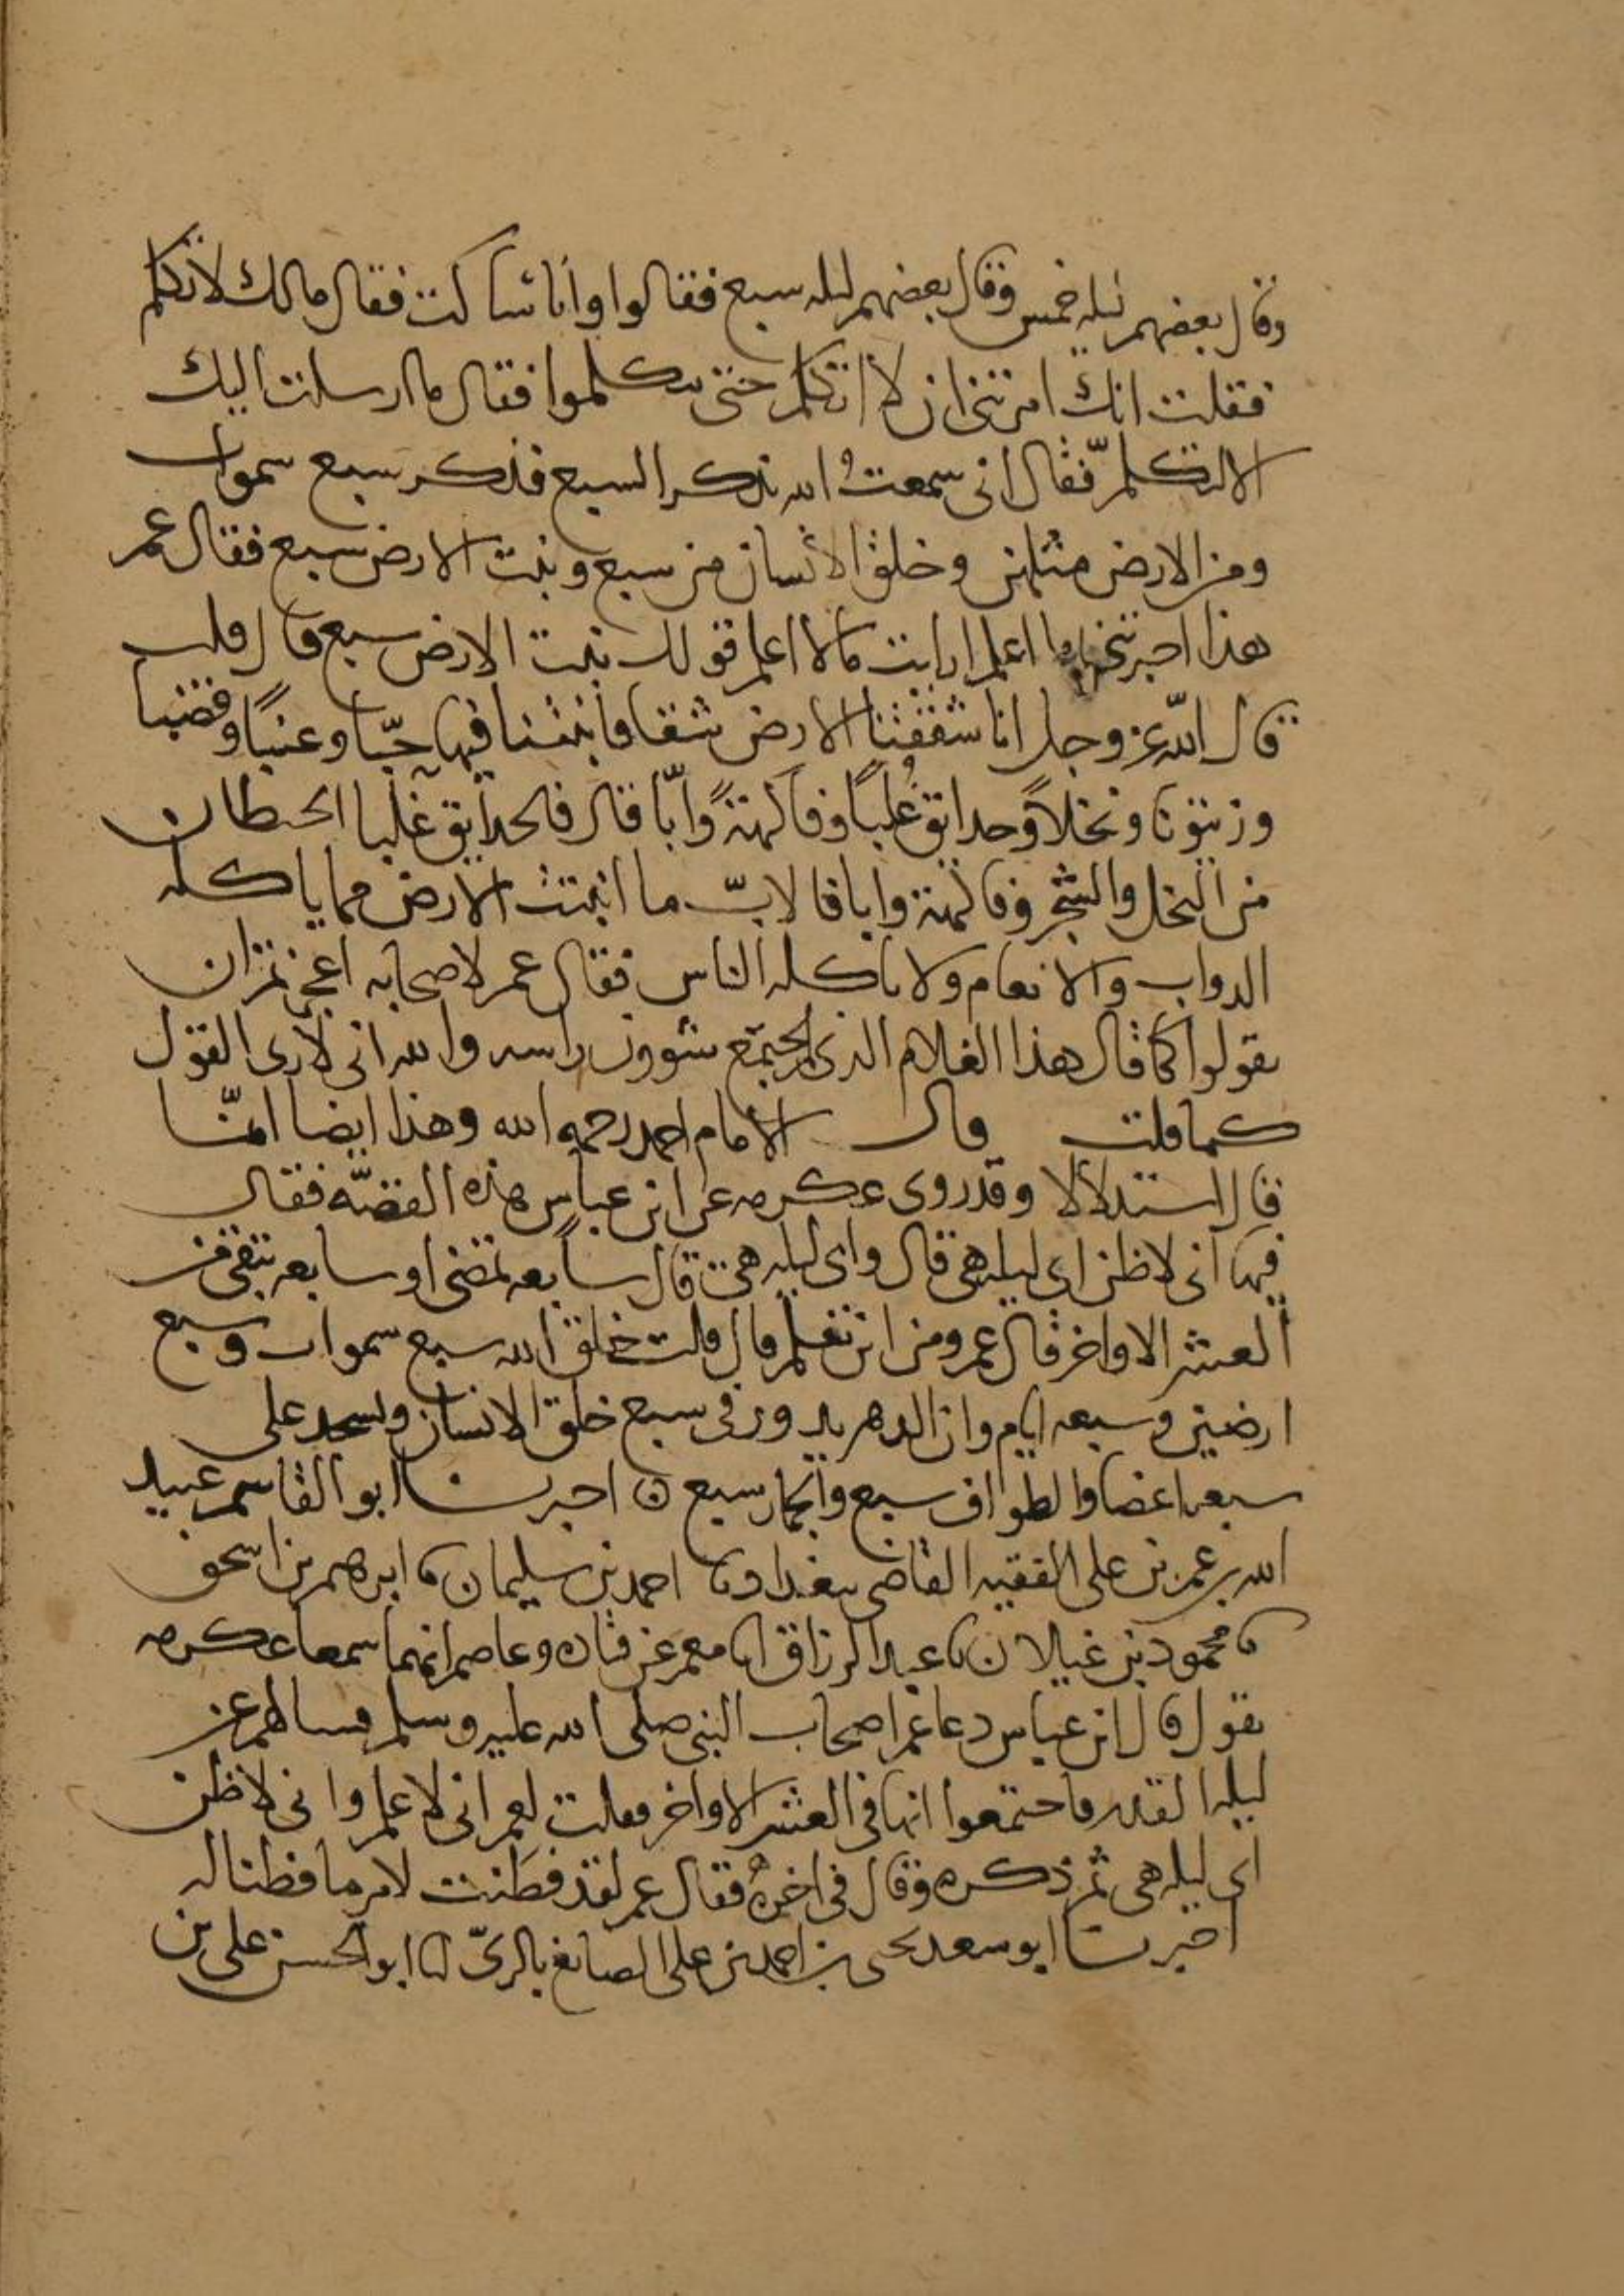 وقال بعضهم ليله خمس وقال بعضهم ليله سبع فقالوا وانا ساكت فقال مالك لا تكلم
فقلت انك امرتنى ان لا اتكلم حتى يتكلموا فقال ما ارسلت اليك
الا لتتكلم فقال انى سمعت الله يذكر السبع فذكر سبع سموات
ومن الارض مثلهن وخلق الانسان من سبع ونبت الارض سبع فقال عمر
هذا اخبرتنى بما اعلم ارايت مالا اعلم قولك نبت الارض سبع قال قلت
قال الله عز وجل انا شققنا الارض شقا فانبتنا فيها حبّا وعنبًا وقضبا
وزيتونا ونخلاً وحدائق غُلبًا وفاكهةً وابّا قال فالحدائق غلبا الحيطان
من النخل والشجر وفاكهة وابا فالابّ ما انبتت الارض مما ياكله
الدواب والانعام ولا ياكله الناس فقال عمر لاصحابه اعجزتم ان
تقولوا كما قال هذا الغلام الذى لم يجتمع شوون راسه والله انى لارى القول
كما قلت قال الامام احمد رحمه الله وهذا ايضا انّما
قال استدلالا وقد روى عكرمه عن ابن عباس هذه القصّه فقال
فيها انى لاظن اى ليله هى قال واى ليله هى قال سابعه تمضى او سابعه تبقى من
العشر الاواخر قال عمر ومن اين تعلم قال قلت خلق الله سبع سموات وسبع
ارضين وسبعه ايام وان الدهر يدور فى سبع خلق الانسان ويسجد على
سبعه اعضا والطواف سبع والجمار سبع ۞ اخبرنا ابو القاسم عبيد
الله بن عمر بن على الفقيه القاضى ببغداد نا احمد بن سليمان نا ابرهيم بن اسحق
نا محمود بن غيلان نا عبد الرزاق انا معمر عن قتاده وعاصم انهما سمعا عكرمه
يقول قال ابن عباس دعا عمر اصحاب النبى صلى الله عليه وسلم فسالهم عن
ليله القدر فاجتمعوا انها فى العشر الاواخر فقلت لعمر انى لاعلم وانى لاظن
اى ليله هى ثم ذكره وقال فى اخره فقال عمر لقد فطنت لامر ما فطنا له
اخبرنا ابو سعد يحيى بن احمد بن على الصايغ بالرىّ انا ابو الحسن على بن